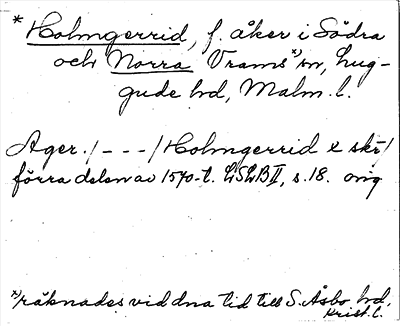 * Holmgerrid, f. åker i Södra
och Norra Vrams x) sn, Lug-
gude hd, Malm. l.
Ager /---/ Holmgerrid
förra delen av 1570-t. LSLB II, s. 18. orig
x) räknades vid dna tid till S. Åsbo hd,
Krist. l.